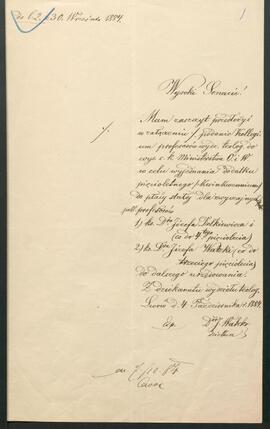 do l. 2. 30. Września 1884.
Wysoki Senacie!
Mam zaszczyt przedłożyć
w załączeniu /. podanie Kollegi
um profesorów wydz. teolog. do
wys. c. k. Ministerstwa O. i W.
w celu wyjednania dodatku
pięcioletniego
do płacy stałej dla zwyczajnych
profesorów
1) ks. Dra Józefa
(co do 4tego pięciolecia)
2) ks. Dra Józefa (co do
trzeciego pięciolecia)
do dalszego urzędowania.
Z dziekanatu wydziału teolog.
Lwów d. 4. Października 1884.
Dr J.
Dziekan
7/10 84